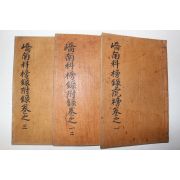 嶠南科榜錄院榜卷之一
嶠南科榜錄附錄卷之一二
嶠南科榜錄附錄卷之三